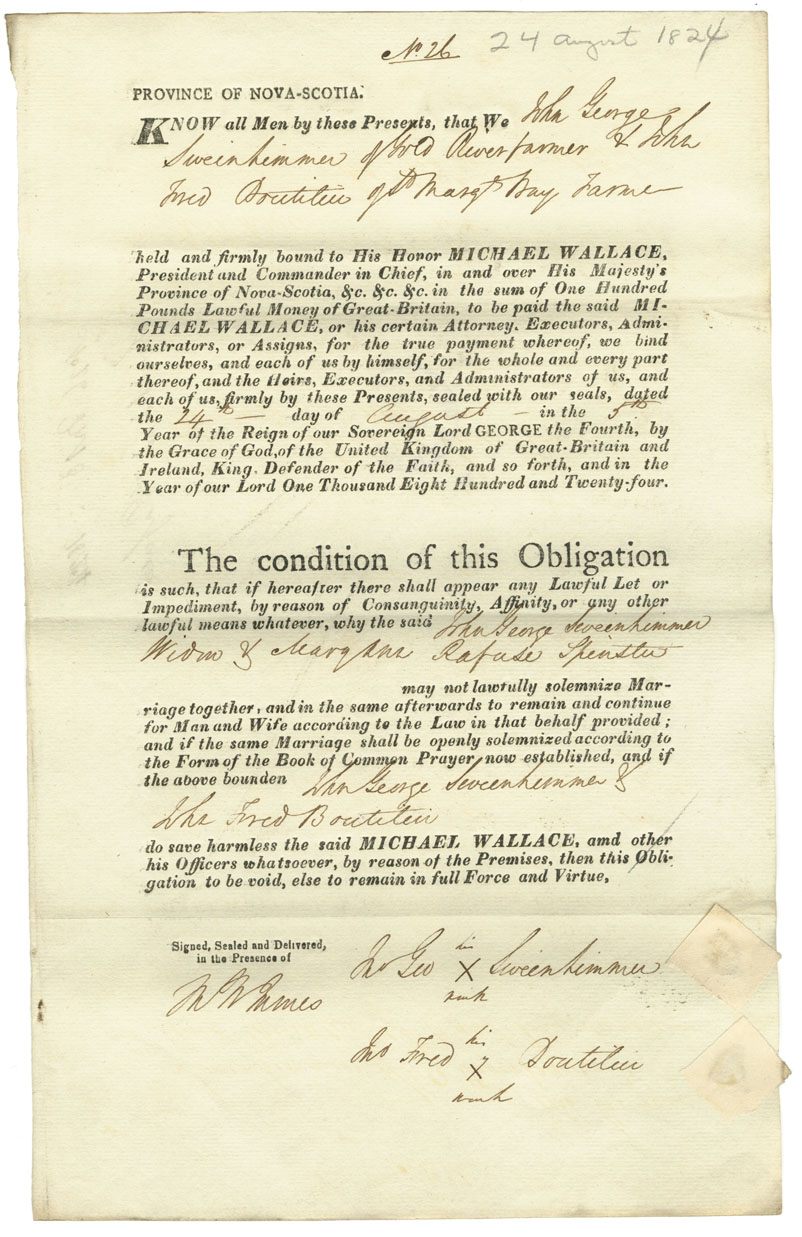 No. 26
24 August 1824
PROVINCE OF NOVA-SCOTIA.
KNOW all Men by these Presents, that We John George
Sweenhimmer of River farmer & John
Fred Boutilier of St Margts Bay Farmer
held and firmly bound to His Honor MICHAEL WALLACE,
President and Commander in Chief, in and over His Majesty's
Province of Nova-Scotia, &c. &c. &c. in the sum of One Hundred
Pounds Lawful Money of Great-Britain, to be paid the said MI-
CHAEL WALLACE, or his certain Attorney. Executors, Admi-
nistrators, or Assigns, for the true payment whereof, we bind
ourselves, and each of us by himself, for the whole and every part
thereof, and the Heirs, Executors, and Administrators of us, and
each of us, firmly by these Presents, sealed with our seals, dated
the 24th — day of August — in the 5th
Year of the Reign of our Sovereign Lord GEORGE the Fourth, by
the Grace of God, of the United Kingdom of Great-Britain and
Ireland, King. Defender of the Faith, and so forth, and in the
Year of our Lord One Thousand Eight Hundred and Twenty-four.
The condition of this Obligation
is such, that if hereafter there shall appear any Lawful Let or
Impediment, by reason of Consanguinity, Affinity, or any other
lawful means whatever, why the said John George Sweenhimmer
Widr & Mary Ann Rafuse Spinster
may not lawfully solemnize Mar-
riage together, and in the same afterwards to remain and continue
for Man and Wife according to the Law in that behalf provided;
and if the same Marriage shall be openly solemnized according to
the Form of the Book of Common Prayer now established, and if
the above bounden John George Sweenhimmer &
John Fred Boutilier
do save harmless the said MICHAEL WALLACE, amd other
his Officers whatsoever, by reason of the Premises, then this Obli-
gation to be void, else to remain in full Force and Virtue,
Signed, Sealed and Delivered,
in the Presence of
his
Jno Geo X Sweenhimmer
mark
his
Jno Fred X Boutilier
mark